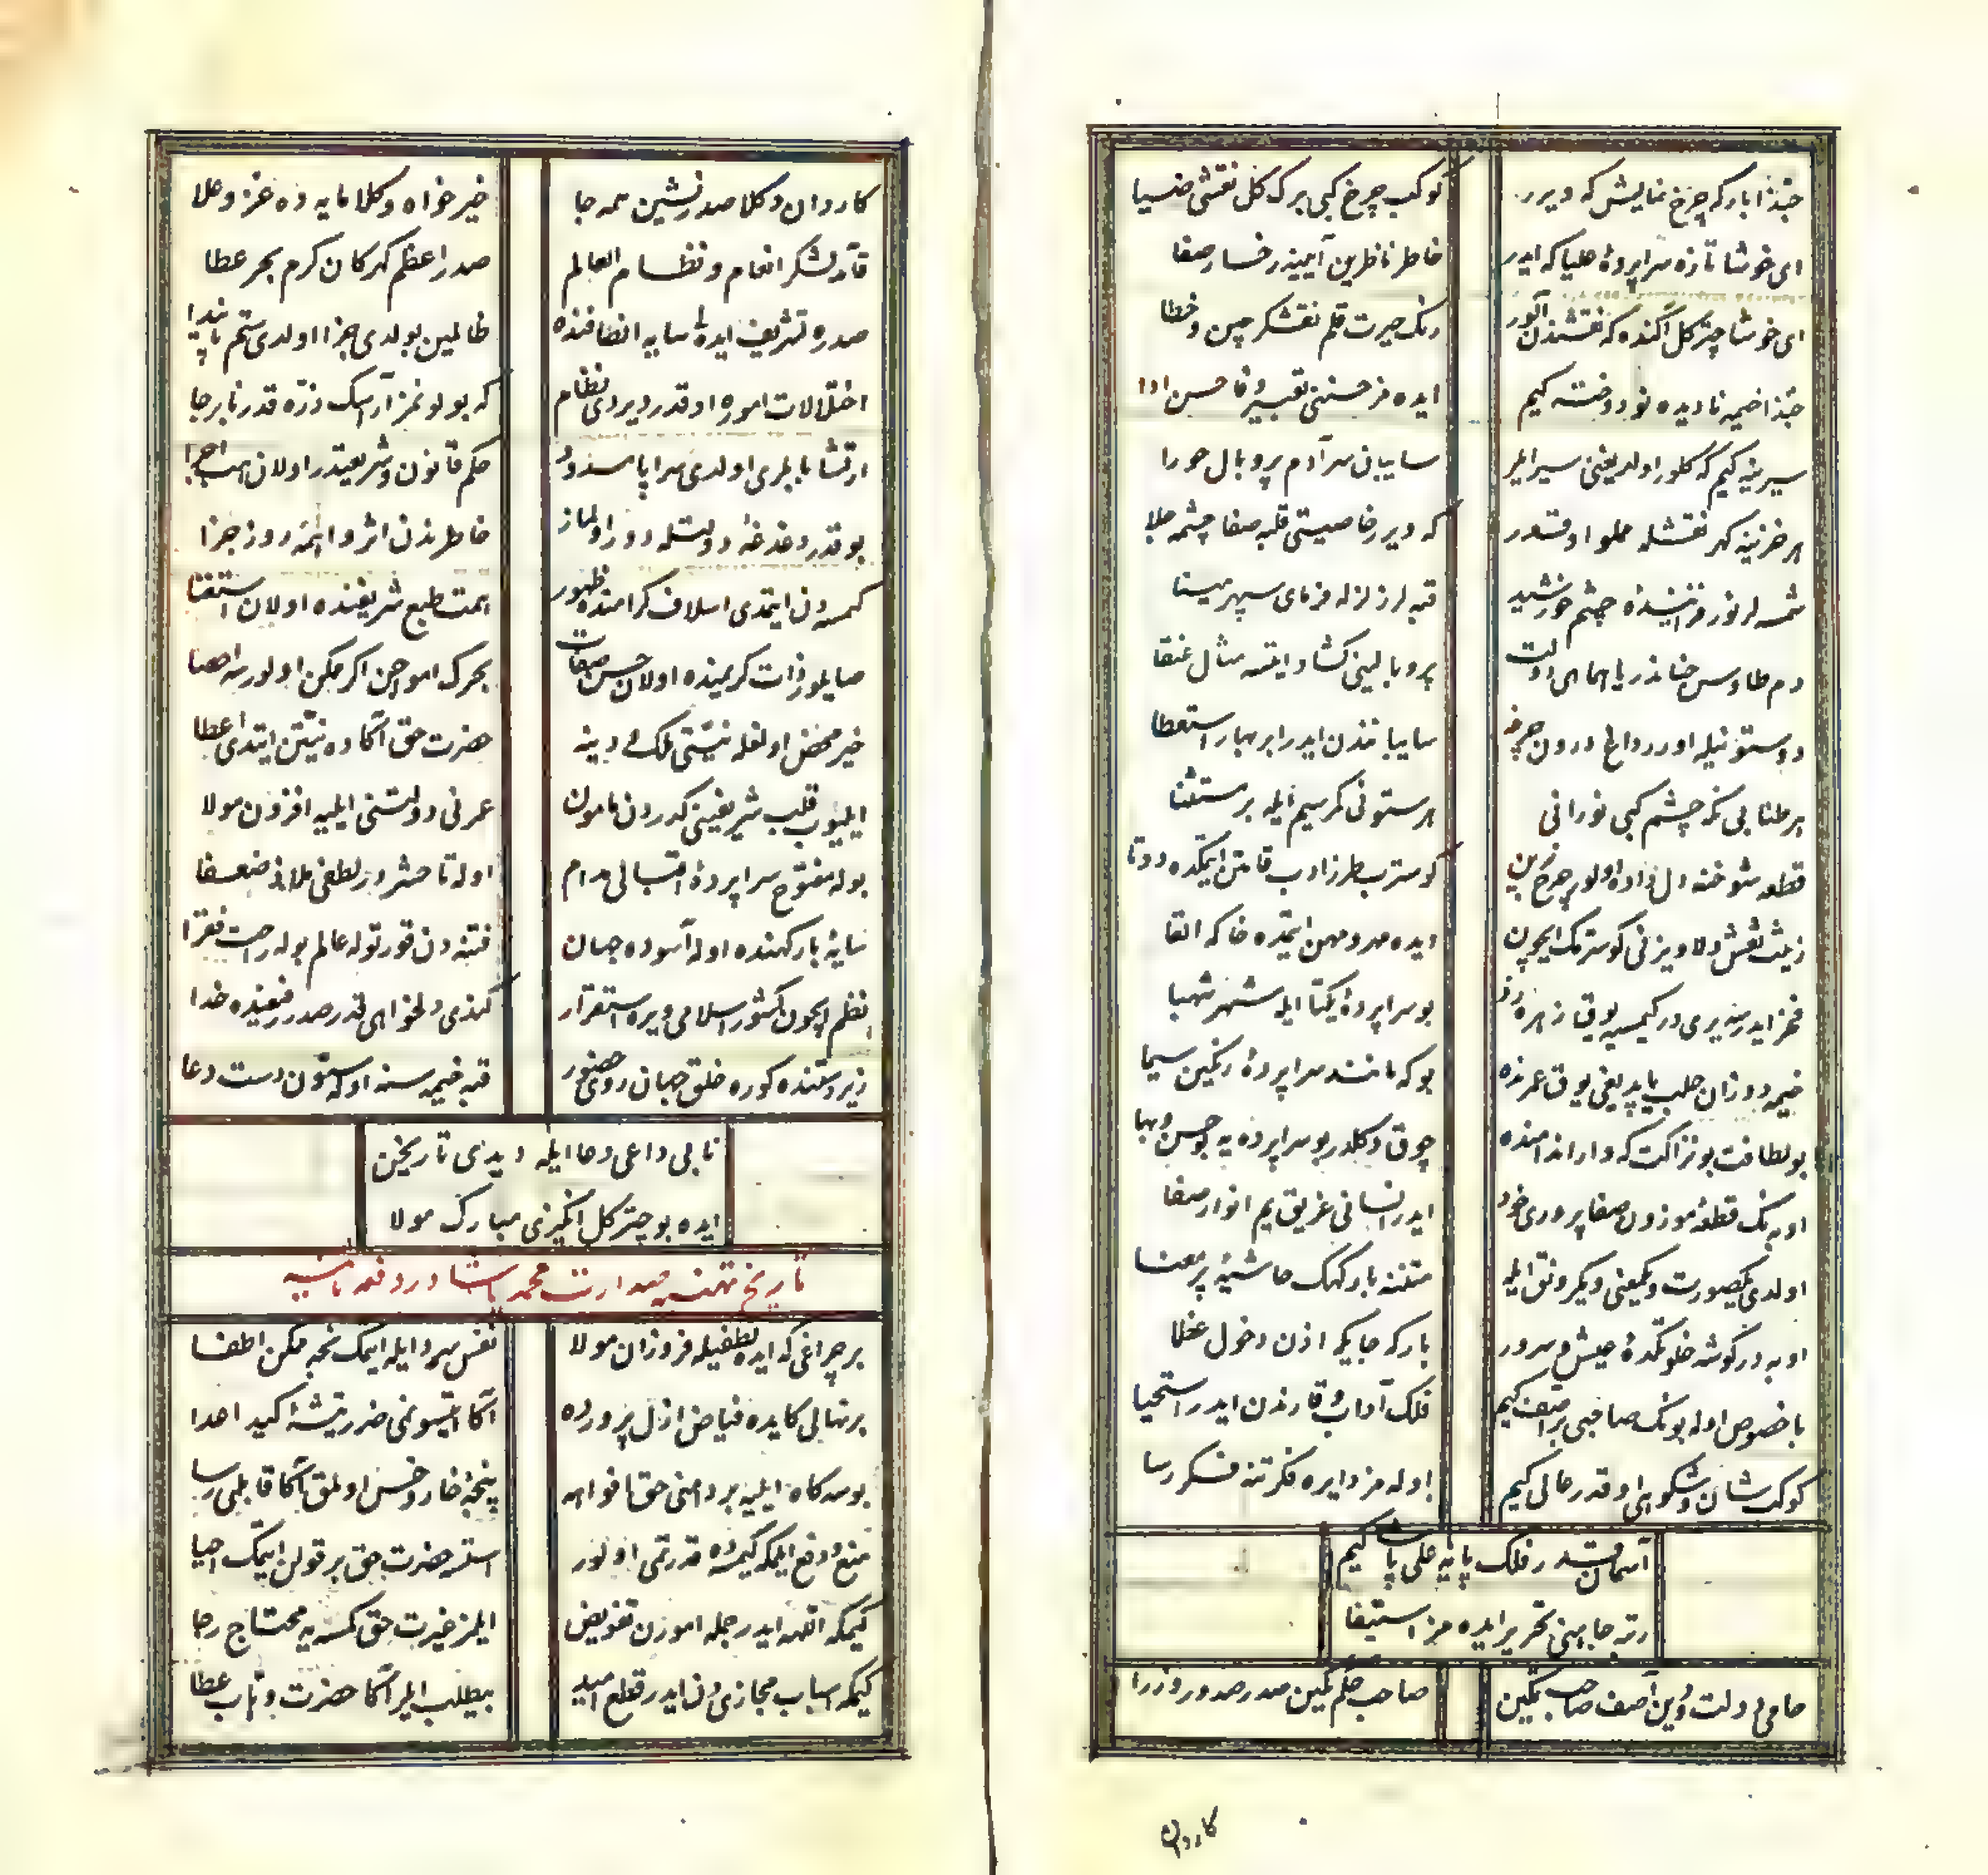 حبذا بارکه چرخ نمایش که ویرر
کوکب چرخ کبی برک کل نقشی ضیا
ای خوشا تازه سراپردهٔ علیا که ایدر
خاطر ناظرین آیینهٔ رخسار صفا
ای خوشا چتر کل اکنده که نقشندن آلور
رنک حیرت قلم نقشکر چین و خطا
حبذا خیمه نادیده نو دوخته کیم
ایده مز حسننی تعبیر وفا حسن ادا
سیرینه کیم که کلور اولر یعنی سیر ایلر
سایبان سر آدم پر و بال حورا
هر خزینه کهر نقشله مملو اوقدر
که ویرر خاصیتی قلبه صفا چشمه جلا
شمسه لر نور فزاینده چشم خورشید
قبه لر زلزله فرمای سپهر مینا
دم طاوس جناندر یا همای دولت
پر و بالینی کشاد ایتسه مثال عنقا
دوستونیله اورر داغ درون چرخه
سایباننندن ایدر ابر بهار استعطا
هر طنابی نکه چشم کبی نورانی
هر ستونی کرسیم ایله بر مستثنا
قطعه شوخنه دل داده اولور چرخ برین
کوسترب طرز ادب قامتن ایتمکده دوتا
زینت نقش دلاویزنی کوسترمک ایچون
ایده مهر و مهن ایتمده خاکه القا
فخر ایدر سه یری در کیمسه یوق زهره
بو سراپردهٔ یکتا ایله شهر شهبا
خیمه دوزان حلب یاپدیغی یوق عمرنده
بو که مانند سراپردهٔ رنکین سیما
بو لطافت بو نزاکت که وار اندامنده
چوق دکلدر بو سراپرده یه بو حسن و بها
اوبه نک قطعهٔ موزون صفا پروری خود
ایدر انسانی غریق یم انوار صفا
اولدی یکصورت و یکمعنی و یکرونق ایله
متننه بارکهک حاشیهٔ پر معنا
اوبه در کوشه خلوتکدهٔ عیش و سرور
بارکه جایکه اذن دخول عقلا
باخصوص اوله بونک صاحبی بر آصف کیم
فلک آداب وقارندن ایدر استحیا
کوکب شان و شکوهی اوقدر عالی کیم
اوله مز دایره فکرتنه فکر رسا
آسمان قدر فلک پایه علی پاشا کیم
رتبه جاهنی تحریر ایده مز استیفا
حامی دولت و دین آصف صاحب تمکین
صاحب حکم نکین صدر صدور وزرا
کاردان
کاردان وکلا صدر نشین همه جا
خیرخواه وکلا مایه ده عز و علا
قائد لشکر انعام و نظام العالم
صدر اعظم کهر کان کرم بحر عطا
صدره تشریف ایده لی سایه انصافنده
ظالمین بولدی جزا اولدی ستم ناپیدا
اختلالات اموره اوقدر ویردی نظام
که بولونمز آرانسک ذره قدر نابرجا
ارتشا بابلری اولدی سراپا مسدود
حکم قانون و شریعتدر اولان هب اجرا
بوقدر دغدغهٔ دولتله دور اولماز
خاطرندن اثر واهمه روز جزا
کمسه دن ایتمدی اسلاف کرامنده ظهور
همت طبع شریفنده اولان استغنا
صایلمز ذات کریمنده اولان حسن صفات
بحرک امواجن اکر ممکن اولورسه احصا
خیر محض اولمغله نیتی ملک و دینه
حضرت حق آکا ده نیتن ایتدی اعطا
ایلیوب قلب شریفینی کدردن مامون
عمرنی دولتنی ایلیه افزون مولا
بوله مفتوح سراپردهٔ اقبالی مدام
اوله تا حشر در لطفی ملاذ ضعفا
سایهٔ بارکهنده اوله آسوده جهان
فتنه دن قورتوله عالم بوله راحت فقرا
نظم ایچون کشور اسلامی ویره استقرار
کندی دلخواهی قدر صدر رفیعنده خدا
زیر دستنده کوره خلق جهان روی حضور
قبه خیمه سنه اوله ستون دست دعا
نابی داعی دعا ایله دیدی تاریخن
ایده بو چتر کل انکیزی مبارک مولا
تاریخ تهنیه صدارت محمد پاشا در دفعه ثانیه
بر چراغی که ایده لطفیله فروزان مولا
نفس سرد ایله ایتمک نجه ممکن اطفا
بر نهالی کا ایده فیاض ازل پرورده
آکا ایتسونمی ضرر تیشهٔ کید اعدا
بوسه کاه ایلیه بر دامنی حق افواهه
پنجهٔ خار و خس اولمق آکا قابلمی رسا
منع و دفع ایلمکه کیمده قدرتمی اولور
استسه حضرت حق بر قولن ایتمک احیا
کیمکه اللهه ایدر جمله امورن تفویض
ایلمز غیرت حق کمسه یه محتاج رجا
کیمکه اسباب مجازی دن ایدر قطع امید
بیطلب ایلر آکا حضرت وهاب عطا